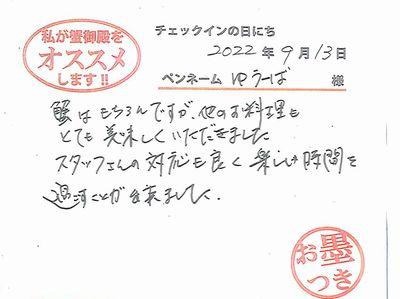 私が蟹御殿を
オススメ
します!!
チェックインの日にち
2022年9月13日
ペンネーム ゆうーば 様
蟹はもちろんですが、他のお料理も
とても美味しくいただきました
スタッフさんの対応も良く楽しい時間を
過すことが出来ました。
お墨
つき